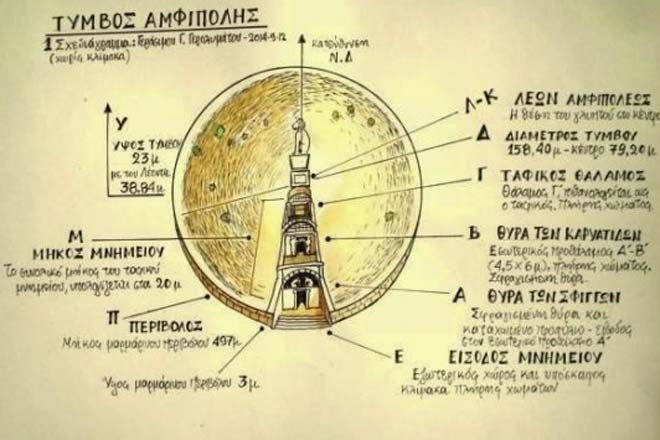 ΤΥΜΒΟΣ ΑΜΦΙΠΟΛΗΣ
1 Σχεδιάγραμμα: Γεράσιμου Γ. Γερολυμάτου - 2014-9-12
(χωρίς κλίμακα)
κατεύθυνση
Ν.Δ
Υ
ΥΨΟΣ ΤΥΜΒΟΥ
23 μ
με τον Λέοντα
38.84 μ.
Λ-Κ ΛΕΩΝ ΑΜΦΙΠΟΛΕΩΣ
Η θέση του γλυπτού στο κέντρο
Δ ΔΙΑΜΕΤΡΟΣ ΤΥΜΒΟΥ
158,40 μ - κέντρο 79,20 μ.
Γ ΤΑΦΙΚΟΣ ΘΑΛΑΜΟΣ
Θάλαμος Γ΄. πιθανολογείται ως
ο ταφικός. Πλήρης χώματος.
Β ΘΥΡΑ ΤΩΝ ΚΑΡΥΑΤΙΔΩΝ
Εσωτερικός προθάλαμος Α΄-Β΄
(4,5 x 6 μ), πλήρης χώματος.
Σφραγισμένη θύρα.
Α ΘΥΡΑ ΤΩΝ ΣΦΙΓΓΩΝ
Σφραγισμένη θύρα και
καταχωμένο προπύλαιο - είσοδος
στον εσωτερικό προθάλαμο Α΄
Ε ΕΙΣΟΔΟΣ ΜΝΗΜΕΙΟΥ
Εξωτερικός χώρος και υπόσκαφος
κλίμακα πλήρης χωμάτων
Μ
ΜΗΚΟΣ ΜΝΗΜΕΙΟΥ
Το συνολικό μήκος του ταφικού
μνημείου, υπολογίζεται στα 20 μ
Π
ΠΕΡΙΒΟΛΟΣ
Μήκος μαρμάρινου περιβόλου 497μ.
Ύψος μαρμάρινου περιβόλου 3 μ.